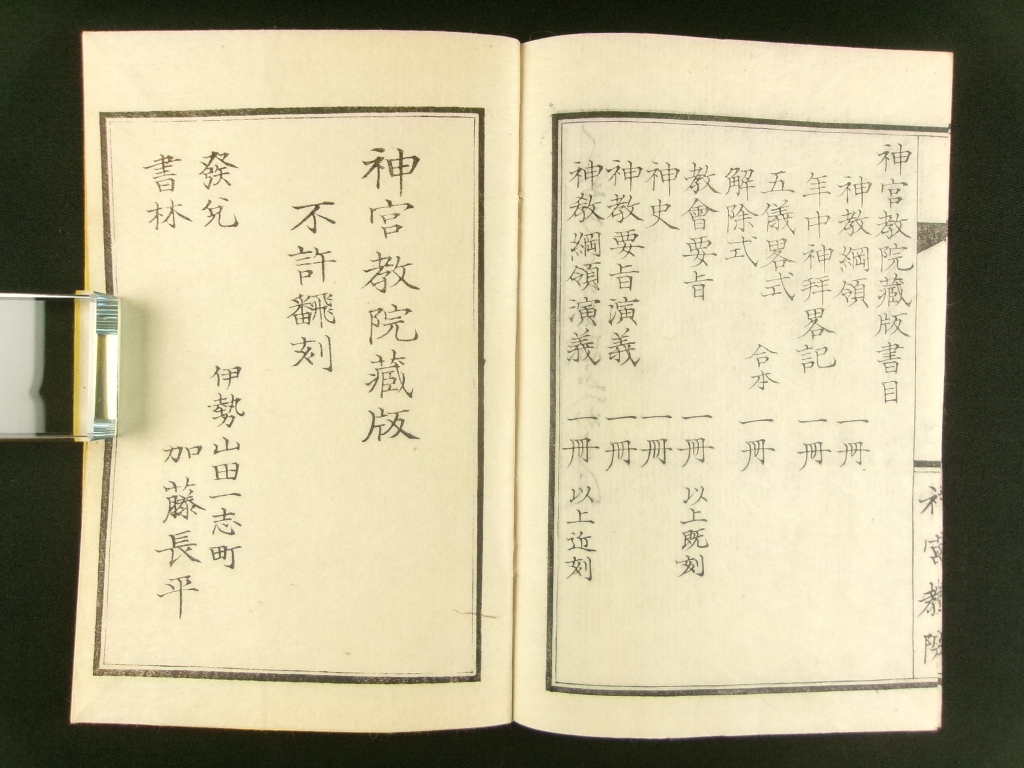 神宮教院
神宮教院藏版書目
神教綱領 一冊
年中神拜畧記 一冊
五儀畧式
解除式 合本 一冊
教會要旨 一冊 以上既刻
神史 一冊
神教要旨演義 一冊
神敎綱領演義 一冊 以上近刻
神宮教院藏版
不許飜刻
發兌
書林
伊勢山田一志町
加藤長平